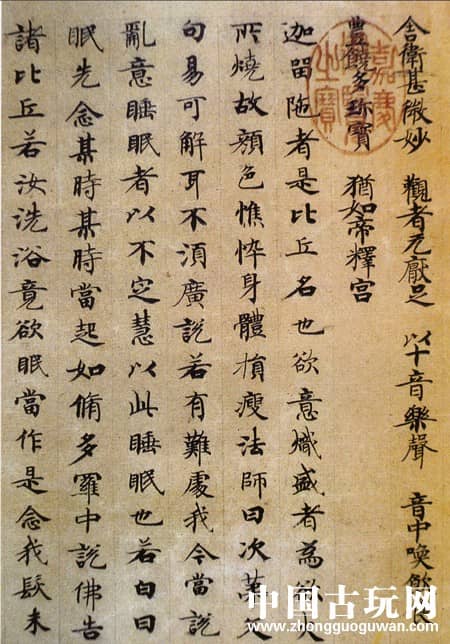 舍衛甚微妙 觀者无厭足 以十音樂聲 音中喚飲
豐饒多珍寶 猶如帝釋宮
迦留陁者是比丘名也欲意熾盛者為欲
所燒故顏色憔悴身體損瘦法師曰次第
句易可解耳不須廣說若有難處我今當說
亂意睡眠者以不定慧以此睡眠也若白日
眠先念某時某時當起如脩多羅中說佛告
諸比丘若汝洗浴竟欲眠當作是念我髮未
嘉慶
之寶
中国古玩网
www.zhongguoguwan.com